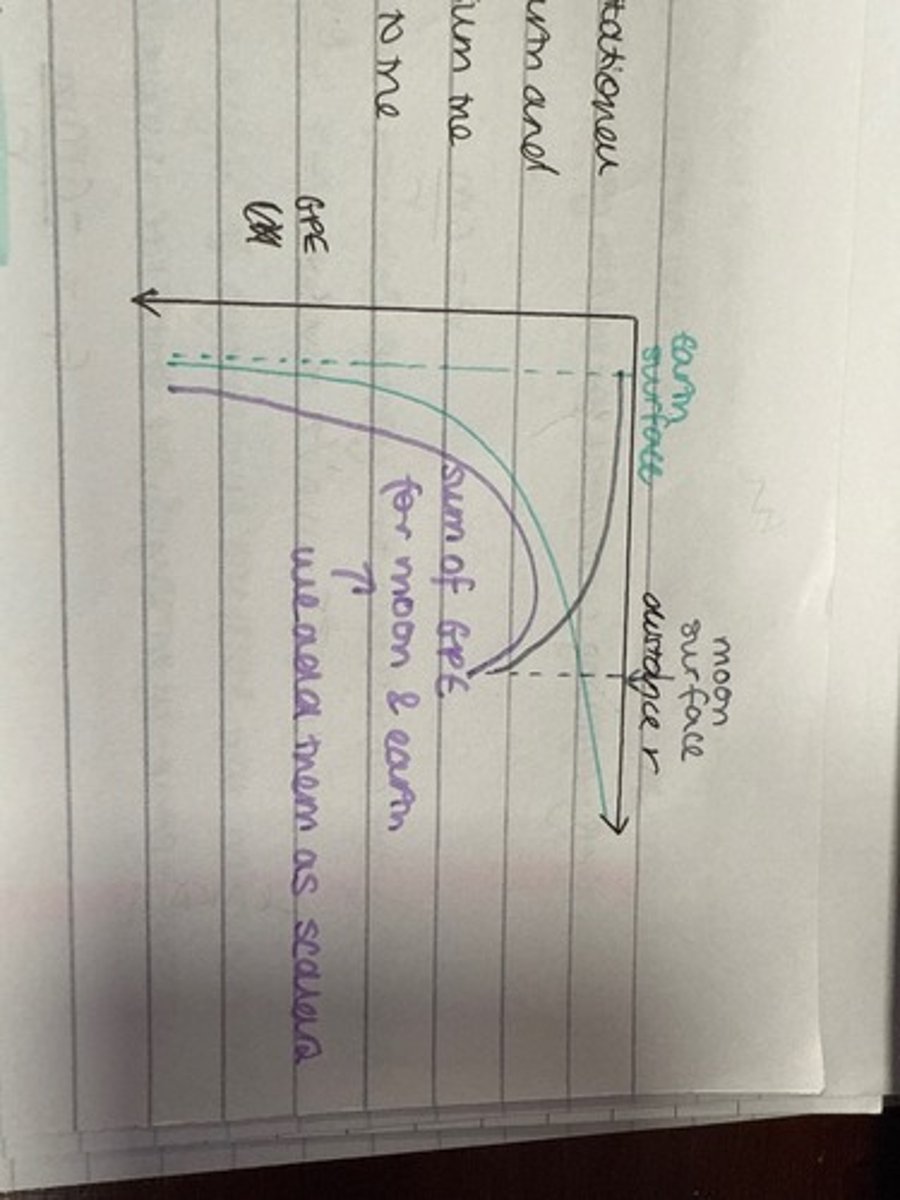 moon
surface
earth
surface
distance r
tational
arth and
the
the
sum of GPE
for moon & earth
we add them as scalars
GPE